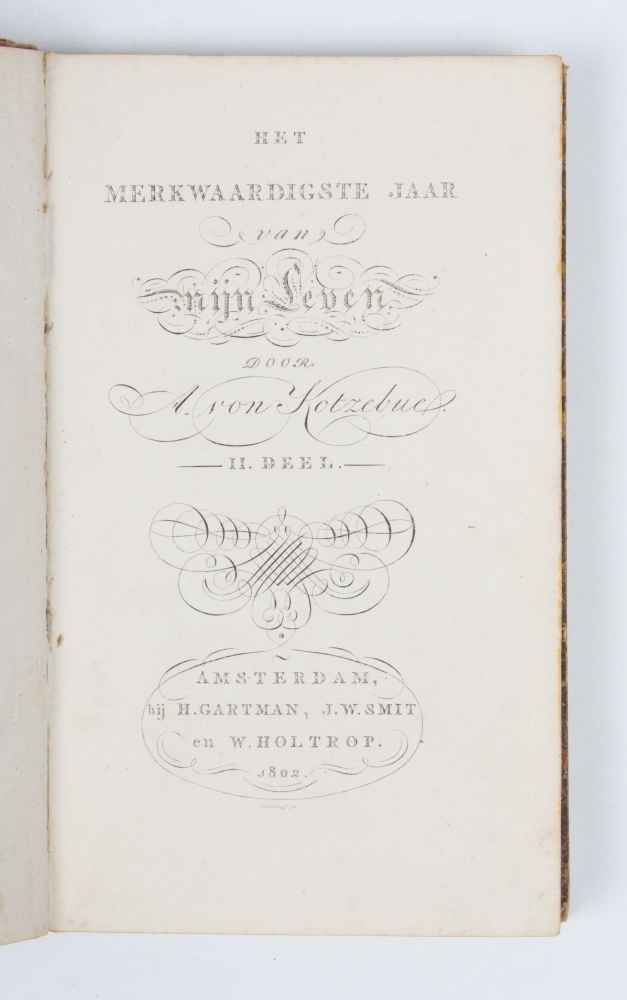 HET
MERKWAARDIGSTE JAAR
van
mijn Leven
DOOR
A. von Kotzebue.
II. DEEL.
AMSTERDAM,
bij H. GARTMAN, J. W. SMIT
en W. HOLTROP.
1802.